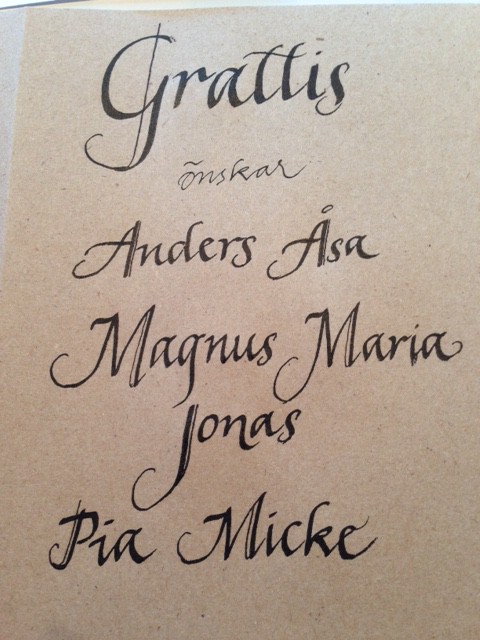 Grattis
önskar
Anders Åsa
Magnus Maria
Jonas
Pia Micke